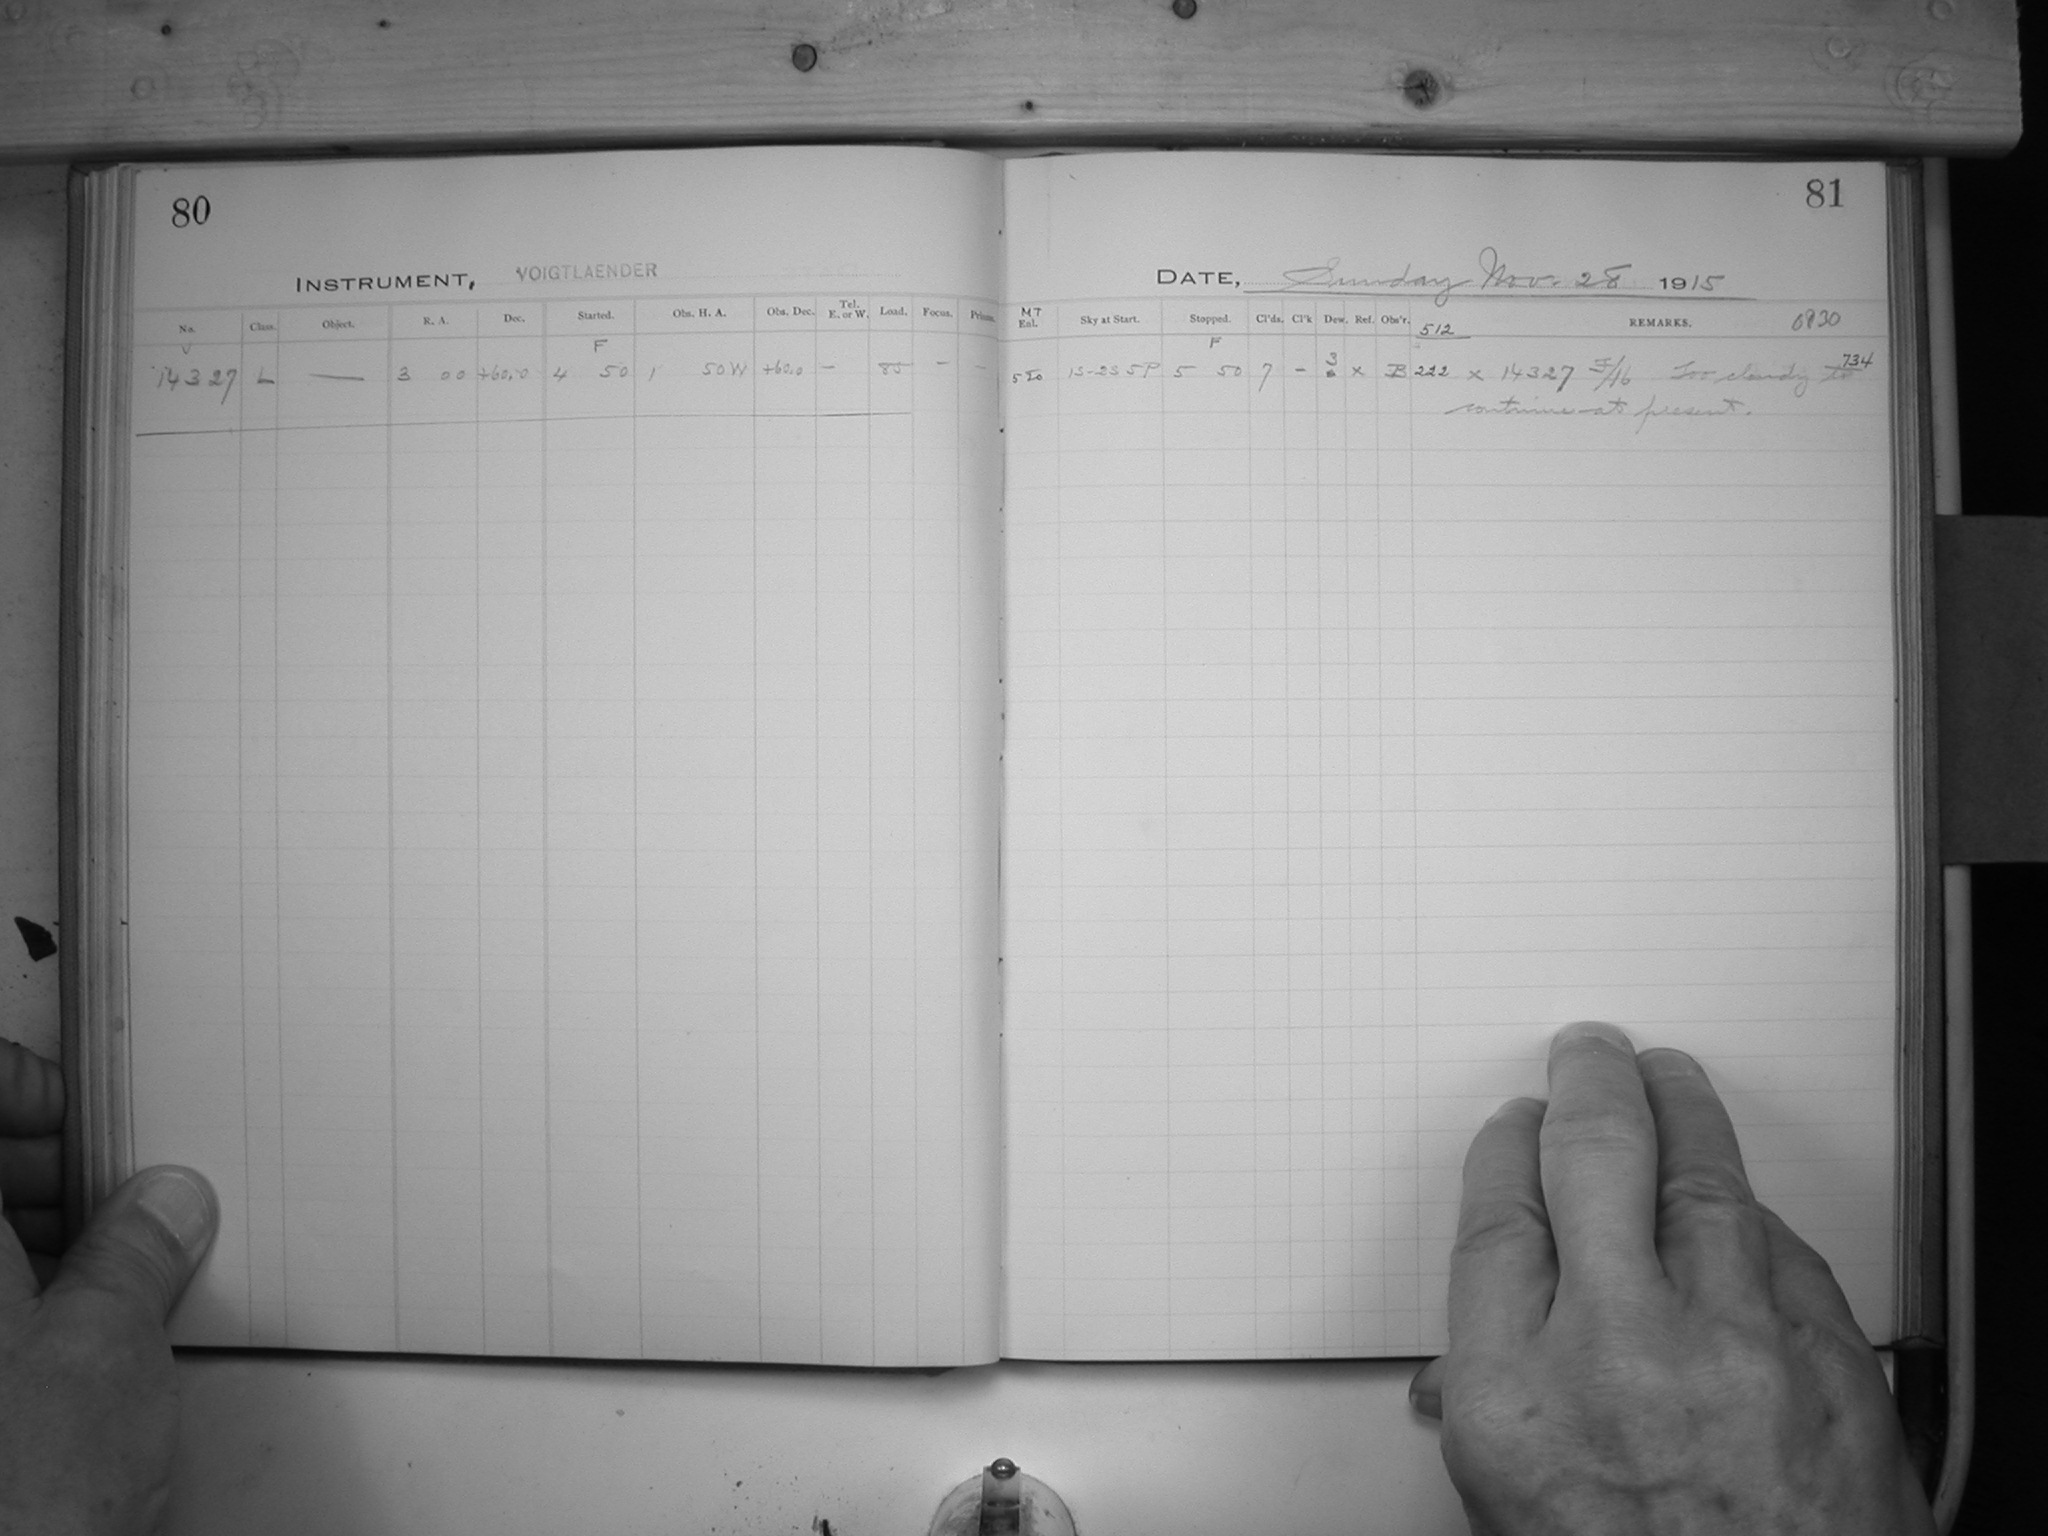 80
INSTRUMENT, VOIGTLAENDER
No. Class. Object. R. A. Dec. Started. Obs. H. A. Obs. Dec. Tel. E. or W. Load. Focus. Prism.
V F
14327 L — 3 00 +60.0 4 50 1 50W +60.0 – 85 – –
81
DATE, Sunday Nov. 28 1915
MT Enl. Sky at Start. Stopped. Cl'ds. Cl'k Dew. Ref. Obs'r. 512 REMARKS. 0930
F
5 I0 15-23 5P 5 50 7 – 3 x B 222 x 14327 F/16 Too cloudy to 734
continue at present.